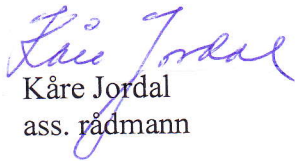 Kåre Jordal
Kåre Jordal
ass. rådmann